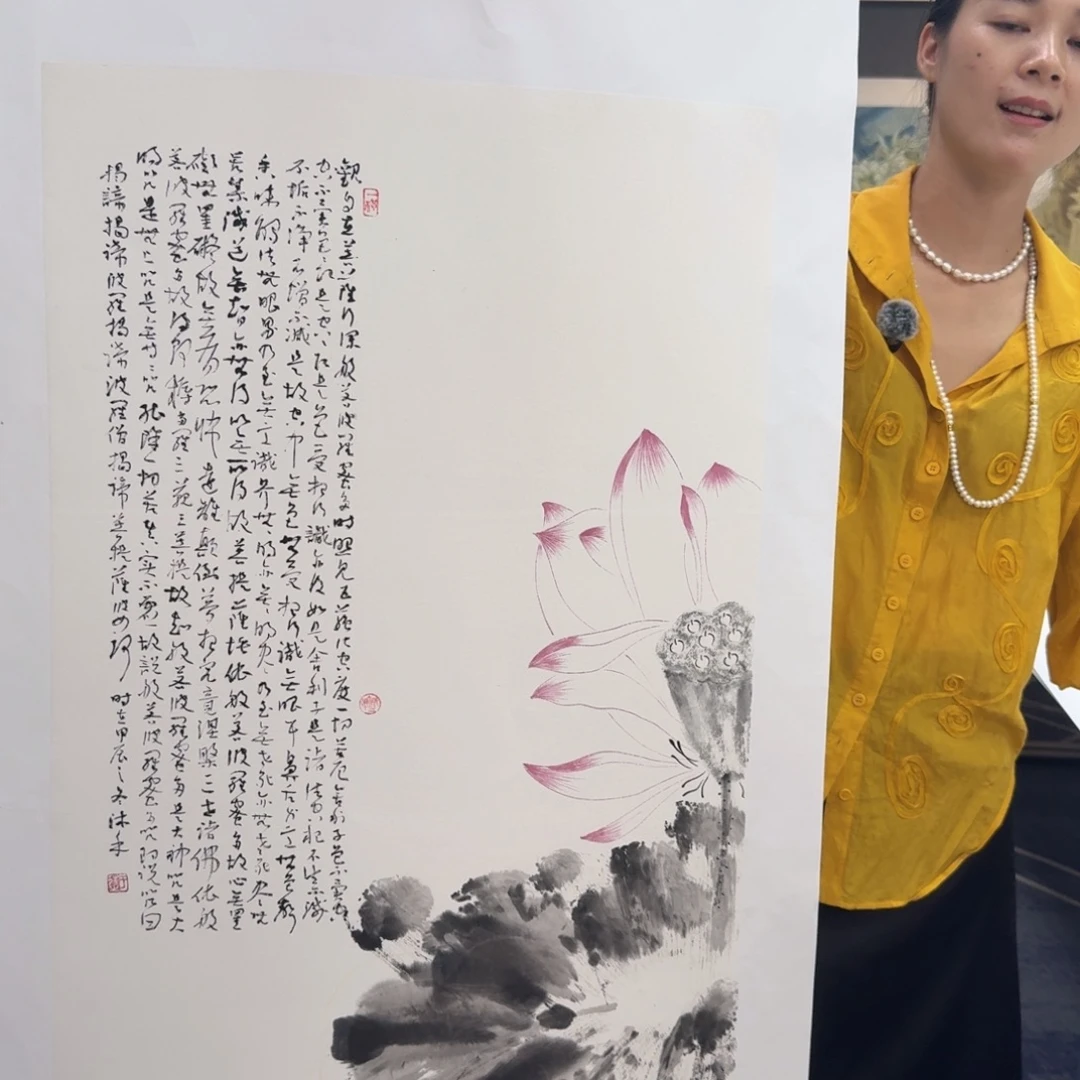 觀自在菩薩行深般若波羅蜜多時照見五蘊皆空度一切苦厄舍利子色不異空
空不異色色即是空空即是色受想行識亦復如是舍利子是諸法空相不生不滅
不垢不淨不增不減是故空中無色無受想行識無眼耳鼻舌身意無色聲
香味觸法無眼界乃至無意識界無無明亦無無明盡乃至無老死亦無老死盡無
苦集滅道無智亦無得以無所得故菩提薩埵依般若波羅蜜多故心無罣
礙無罣礙故無有恐怖遠離顛倒夢想究竟涅槃三世諸佛依般
若波羅蜜多故得阿耨多羅三藐三菩提故知般若波羅蜜多是大神咒是大
明咒是無上咒是無等等咒能除一切苦真實不虛故說般若波羅蜜多咒即說咒曰
揭諦揭諦波羅揭諦波羅僧揭諦菩提薩婆訶 時在甲辰之冬